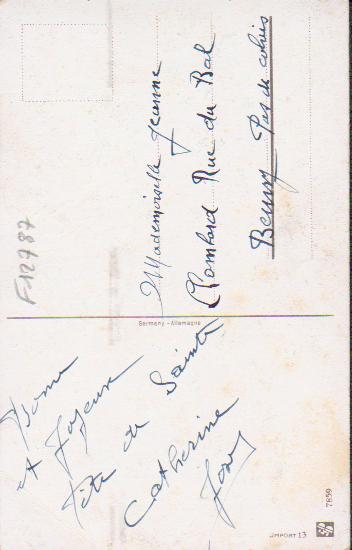 Bonne
et Joyeuse
fête de Sainte
Catherine
José
Germany - Allemagne
Mademoiselle Jeanne
Plomtard Rue du Bal
Beuvry Pas de calais
F12787
JMPORT 13
7859